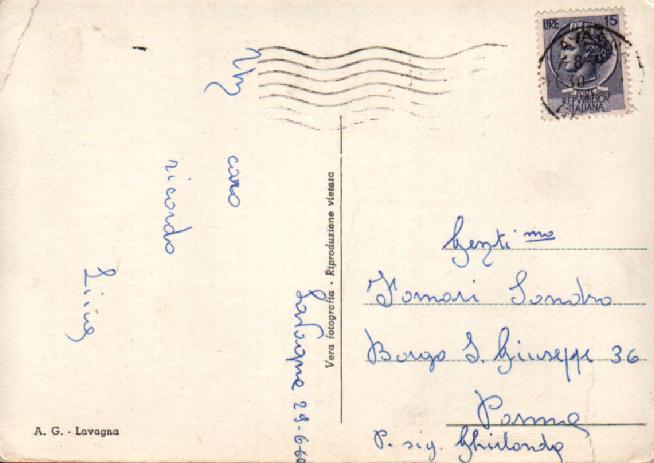 Un
caro
ricordo
Lavagna 29-6-60
Vera fotografia - Riproduzione vietata
A. G. - Lavagna
LIRE 15
REPVBBLICA
ITALIANA
Gent.mo
Sandro
Borgo S. Giuseppe 36
Parma
P. sig. Ghirlanda